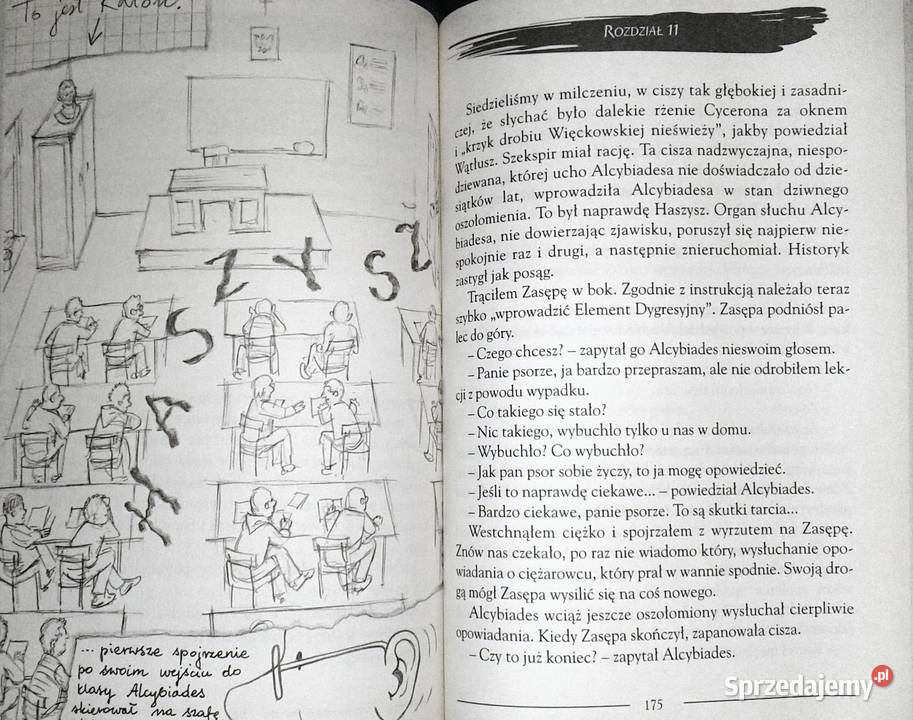 To jest Katon.
HASZYSZ
... pierwsze spojrzenie
po swoim wejściu do
klasy Alcybiades
skierował na szafę
ROZDZIAŁ 11
Siedzieliśmy w milczeniu, w ciszy tak głębokiej i zasadni-
czej, że słychać było dalekie rżenie Cycerona za oknem
i „krzyk drobiu Więckowskiej nieświeży”, jakby powiedział
Wątłusz. Szekspir miał rację. Ta cisza nadzwyczajna, niespo-
dziewana, której ucho Alcybiadesa nie doświadczało od dzie-
siątków lat, wprowadziła Alcybiadesa w stan dziwnego
oszołomienia. To był naprawdę Haszysz. Organ słuchu Alcy-
biadesa, nie dowierzając zjawisku, poruszył się najpierw nie-
spokojnie raz i drugi, a następnie znieruchomiał. Historyk
zastygł jak posąg.
Trąciłem Zasępę w bok. Zgodnie z instrukcją należało teraz
szybko „wprowadzić Element Dygresyjny”. Zasępa podniósł pa-
lec do góry.
– Czego chcesz? – zapytał go Alcybiades nieswoim głosem.
– Panie psorze, ja bardzo przepraszam, ale nie odrobiłem lek-
cji z powodu wypadku.
– Co takiego się stało?
– Nic takiego, wybuchło tylko u nas w domu.
– Wybuchło? Co wybuchło?
– Jak pan psor sobie życzy, to ja mogę opowiedzieć.
– Jeśli to naprawdę ciekawe... – powiedział Alcybiades.
– Bardzo ciekawe, panie psorze. To są skutki tarcia...
Westchnąłem ciężko i spojrzałem z wyrzutem na Zasępę.
Znów nas czekało, po raz nie wiadomo który, wysłuchanie opo-
wiadania o ciężarowcu, który prał w wannie spodnie. Swoją dro-
gą mógł Zasępa wysilić się na coś nowego.
Alcybiades wciąż jeszcze oszołomiony wysłuchał cierpliwie
opowiadania. Kiedy Zasępa skończył, zapanowała cisza.
– Czy to już koniec? – zapytał Alcybiades.
175
Sprzedajemy.pl